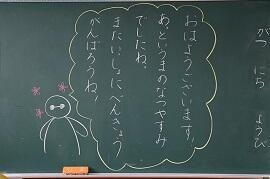 がつ　にち　ようび
おはようございます!
あっというまのなつやすみ
でしたね。
またいっしょにべんきょう
がんばろうね!